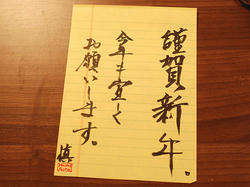 謹賀新年。
今年も宜しく
お願いします。
慎